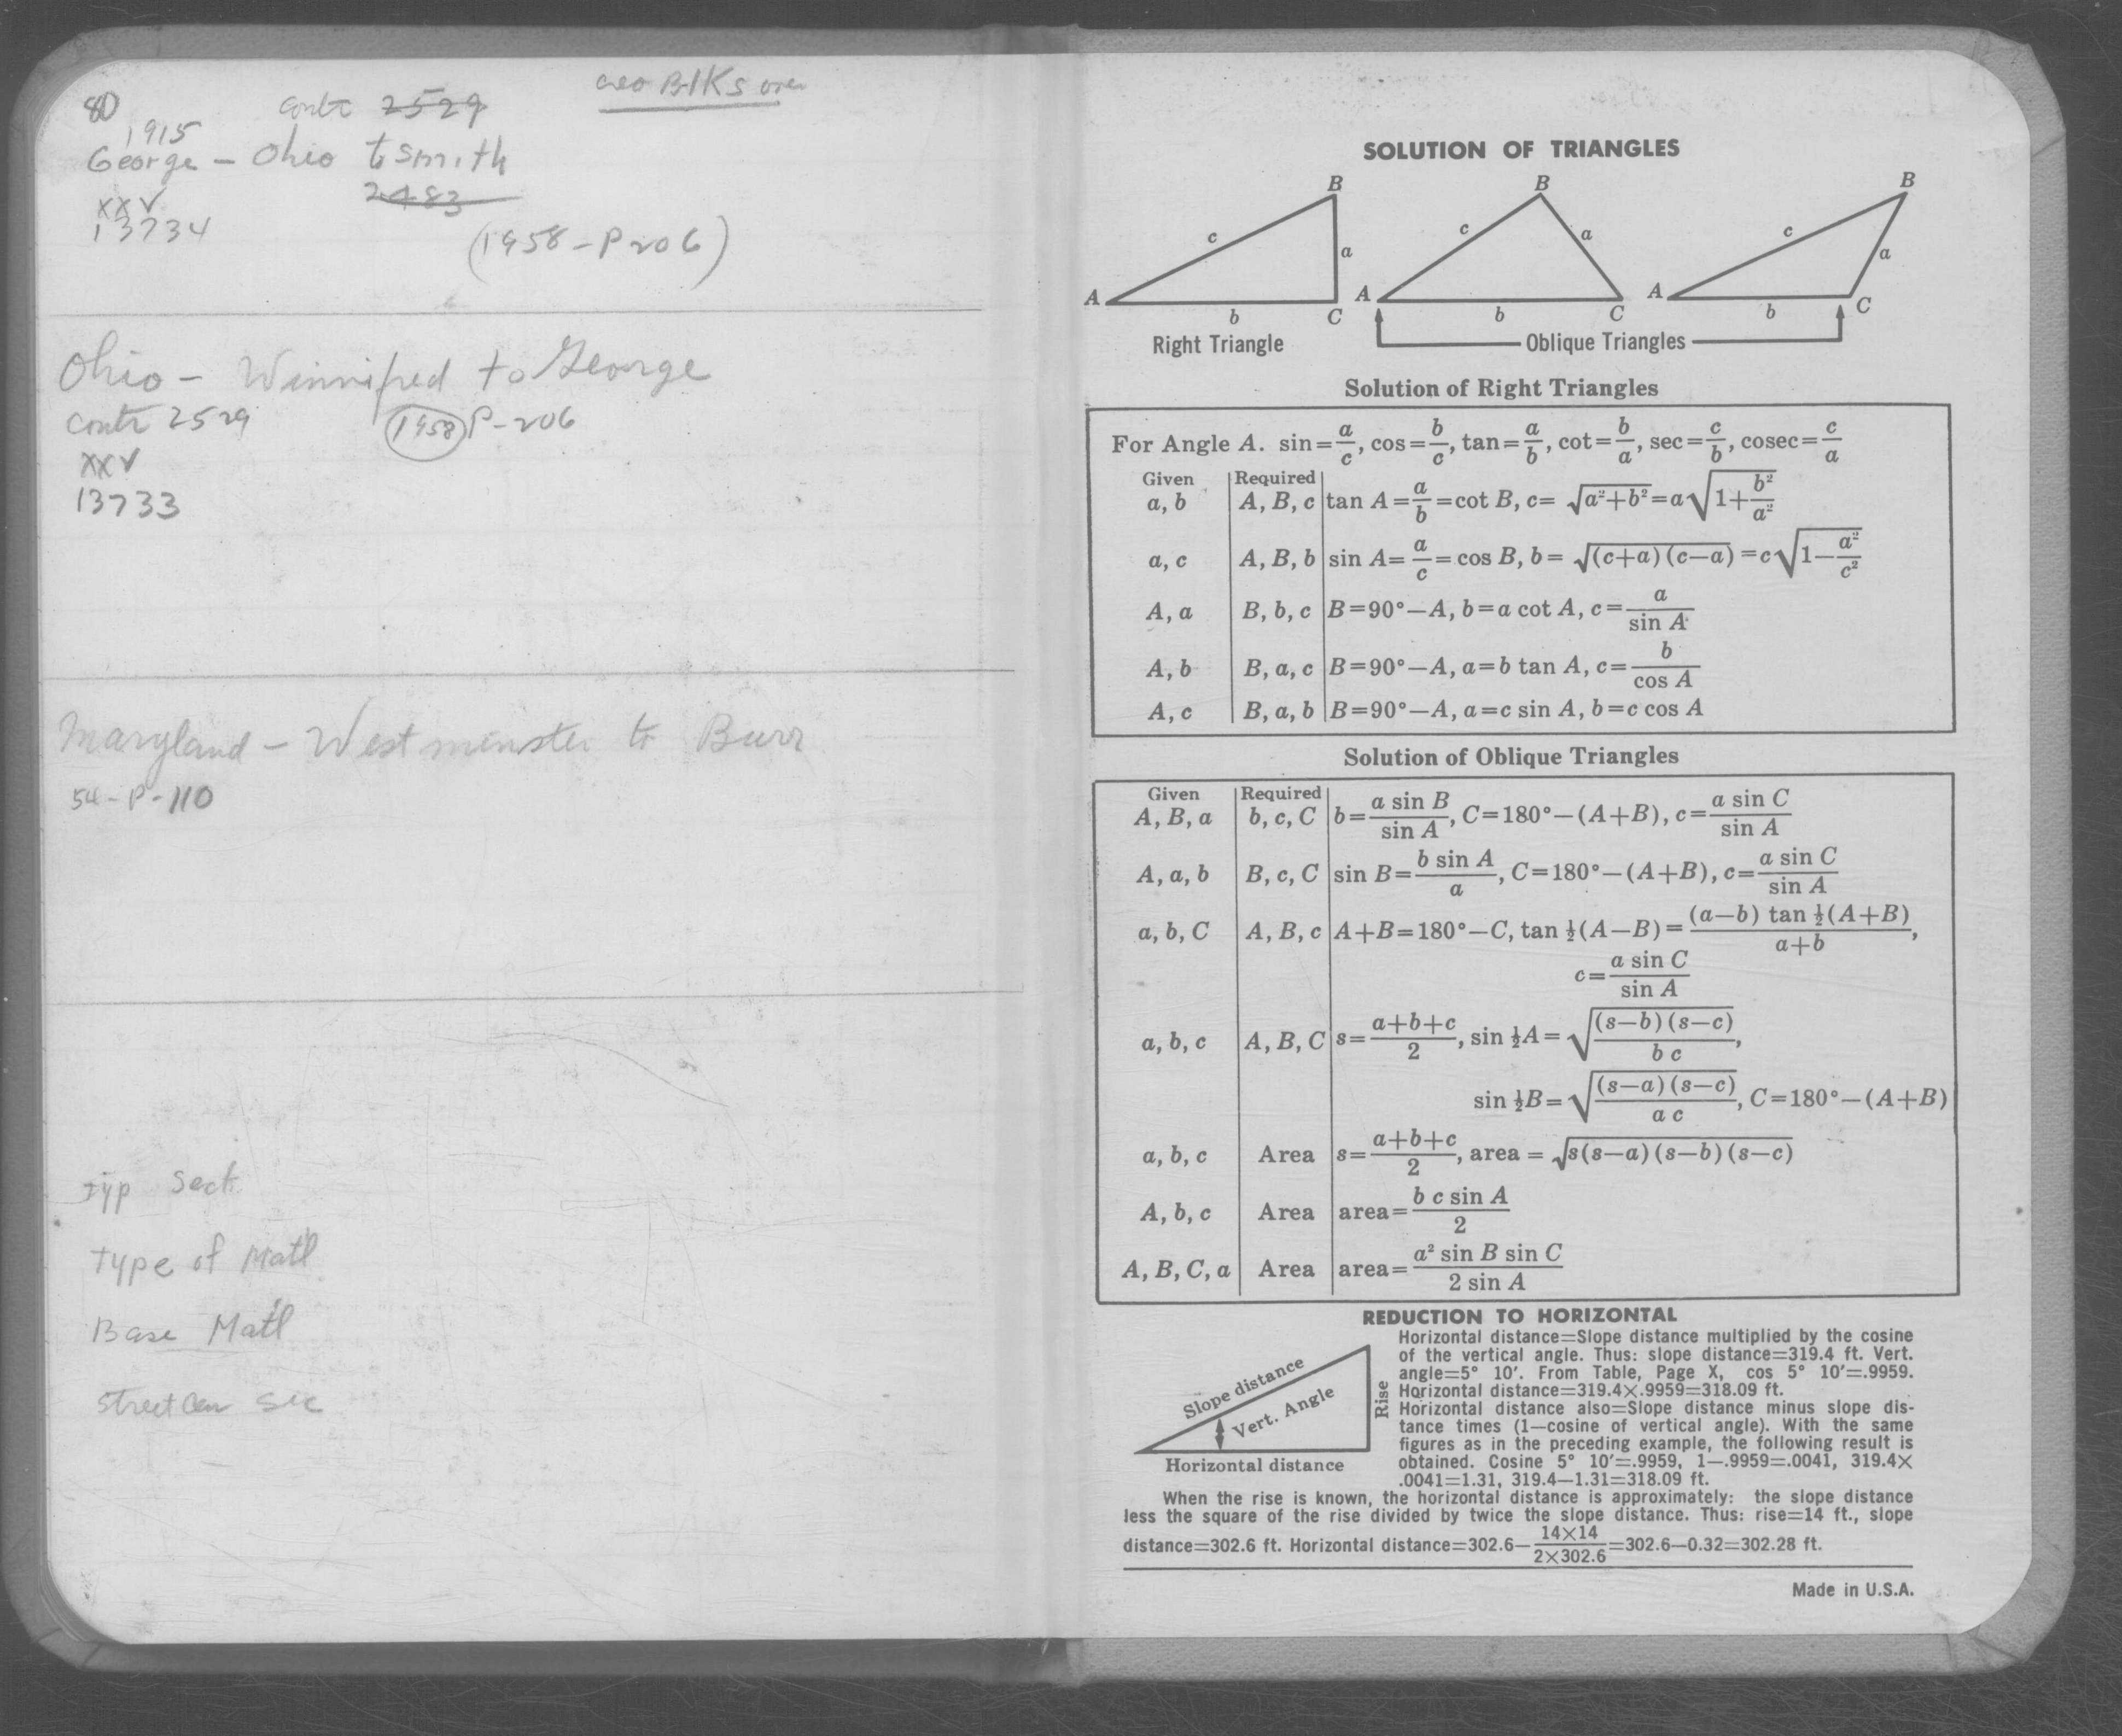 80
contr 2529
Geo BlKs over
1915
George - Ohio to Smith
2483
xx✓
13734
(1958-P206)
Ohio - Winnifred to George
contr 2529
1958 P-206
xx✓
13733
Maryland - Westminster to Burr
54-P-110
Typ Sect
Type of Matl
Base Matl
Street Cen Sec
SOLUTION OF TRIANGLES
B
c
a
A
b
C
Right Triangle
B
c
a
A
b
C
B
c
a
A
b
C
Oblique Triangles
Solution of Right Triangles
For Angle A. sin=a/c, cos=b/c, tan=a/b, cot=b/a, sec=c/b, cosec=c/a
Given Required
a, b A, B, c tan A=a/b=cot B, c=√(a²+b²)=a√(1+b²/a²)
a, c A, B, b sin A=a/c=cos B, b=√((c+a)(c−a))=c√(1−a²/c²)
A, a B, b, c B=90°−A, b=a cot A, c=a/sin A
A, b B, a, c B=90°−A, a=b tan A, c=b/cos A
A, c B, a, b B=90°−A, a=c sin A, b=c cos A
Solution of Oblique Triangles
Given Required
A, B, a b, c, C b=a sin B/sin A, C=180°−(A+B), c=a sin C/sin A
A, a, b B, c, C sin B=b sin A/a, C=180°−(A+B), c=a sin C/sin A
a, b, C A, B, c A+B=180°−C, tan ½(A−B)=(a−b) tan ½(A+B)/a+b,
c=a sin C/sin A
a, b, c A, B, C s=a+b+c/2, sin ½A=√((s−b)(s−c)/b c),
sin ½B=√((s−a)(s−c)/a c), C=180°−(A+B)
a, b, c Area s=a+b+c/2, area=√(s(s−a)(s−b)(s−c))
A, b, c Area area=b c sin A/2
A, B, C, a Area area=a² sin B sin C/2 sin A
REDUCTION TO HORIZONTAL
Slope distance
Vert. Angle
Rise
Horizontal distance
Horizontal distance=Slope distance multiplied by the cosine
of the vertical angle. Thus: slope distance=319.4 ft. Vert.
angle=5° 10′. From Table, Page X, cos 5° 10′=.9959.
Horizontal distance=319.4×.9959=318.09 ft.
Horizontal distance also=Slope distance minus slope dis-
tance times (1—cosine of vertical angle). With the same
figures as in the preceding example, the following result is
obtained. Cosine 5° 10′=.9959, 1—.9959=.0041, 319.4×
.0041=1.31, 319.4—1.31=318.09 ft.
When the rise is known, the horizontal distance is approximately: the slope distance
less the square of the rise divided by twice the slope distance. Thus: rise=14 ft., slope
distance=302.6 ft. Horizontal distance=302.6−14×14/2×302.6=302.6−0.32=302.28 ft.
Made in U.S.A.